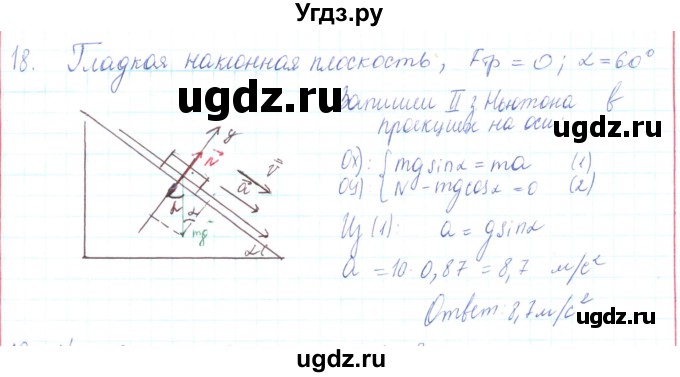 Угдз.ру
18. Гладкая наклонная плоскость, Fтр = 0; α = 60°
ugdz.ru
Запишем II з Ньютона в
проекциях на оси
y
N
v
a
Ox): { mg sinα = ma (1)
Oy): { N - mg cosα = 0 (2)
α
mg
α
Из (1): a = g sinα
a = 10·0,87 = 8,7 м/с²
Ответ: 8,7 м/с²
ugdz.ru
ugdz.ru